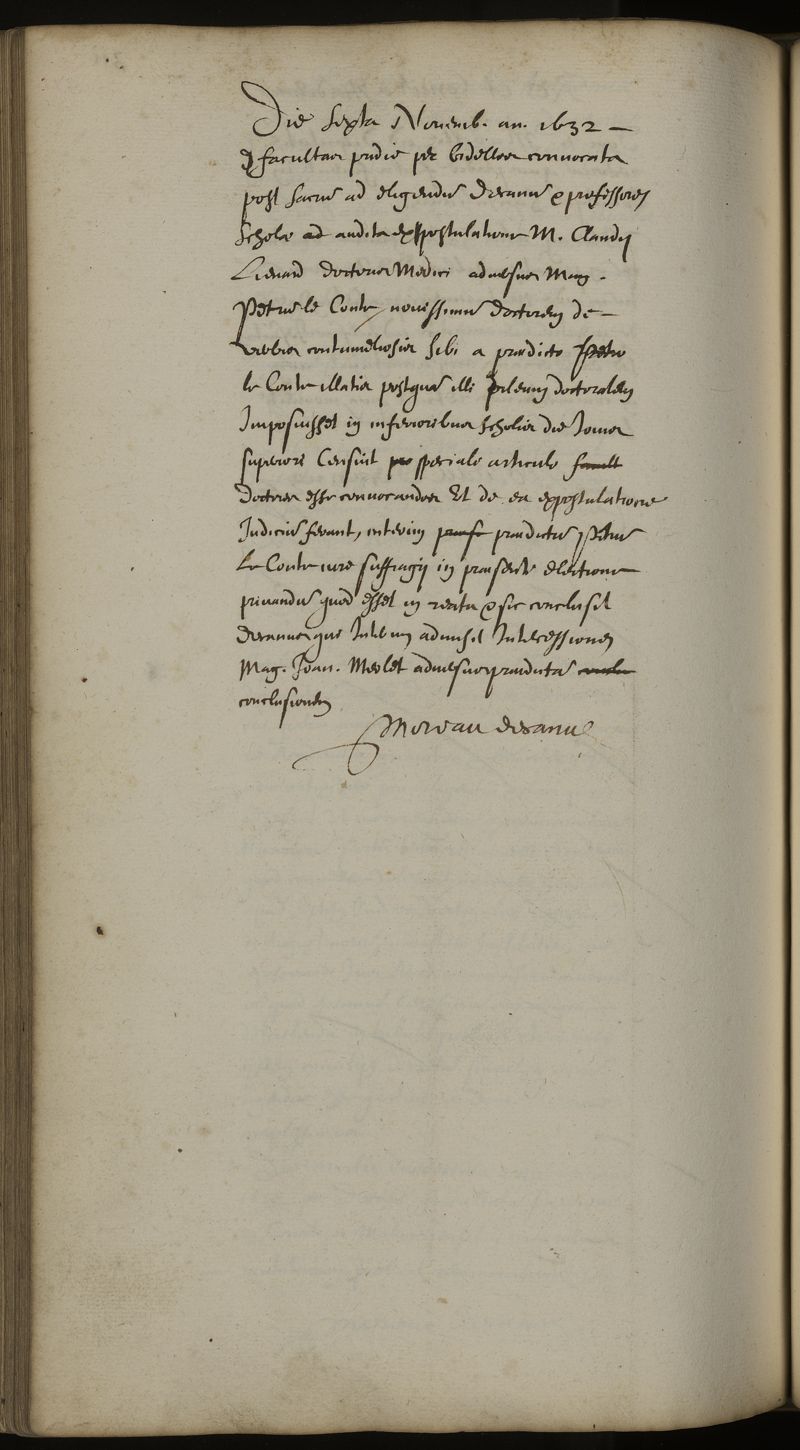 Die sexta Novemb. an. 1632 —
facultas pridie per bidellos convocata
post sacrū ad eligendū Decanū & professores
scholæ ad audita expostulatione M. Claudij
Lienard doctoris Medici adversus Mag.
Petrū le Conte novissimū doctorem de —
verbis contumeliosis sibi a prædicto Petro
le Conte illatis postquā illi pileum doctoralem
Imposuisset in inferioribus scholis die Jovis
superiori Censuit speciali articulo
doctores esse convocandos Et de ea expostulatione
Judiciū ferant, interim prædictū Petrū
le Conte iure suffragij in præsenti electione
privandū quod esset in reatu & sic conclusit
decanus qui Interim admisit Intercessionem
Mag. Joan. Merlet adversus prædictā
conclusionem
Moreau decanus